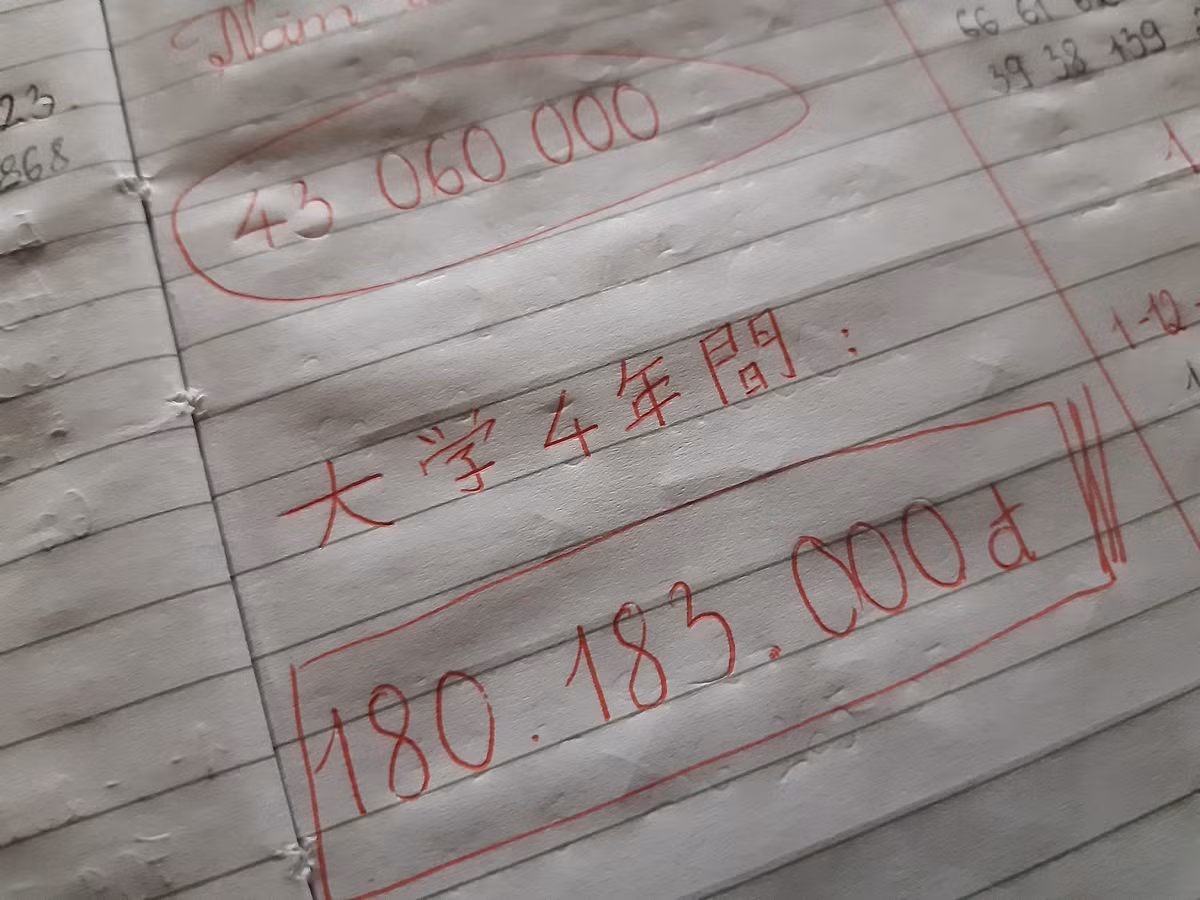 Năm
23
868
43 060 000
大学4年間:
180.183.000đ
66 61
39 38 139
1
1-12
1